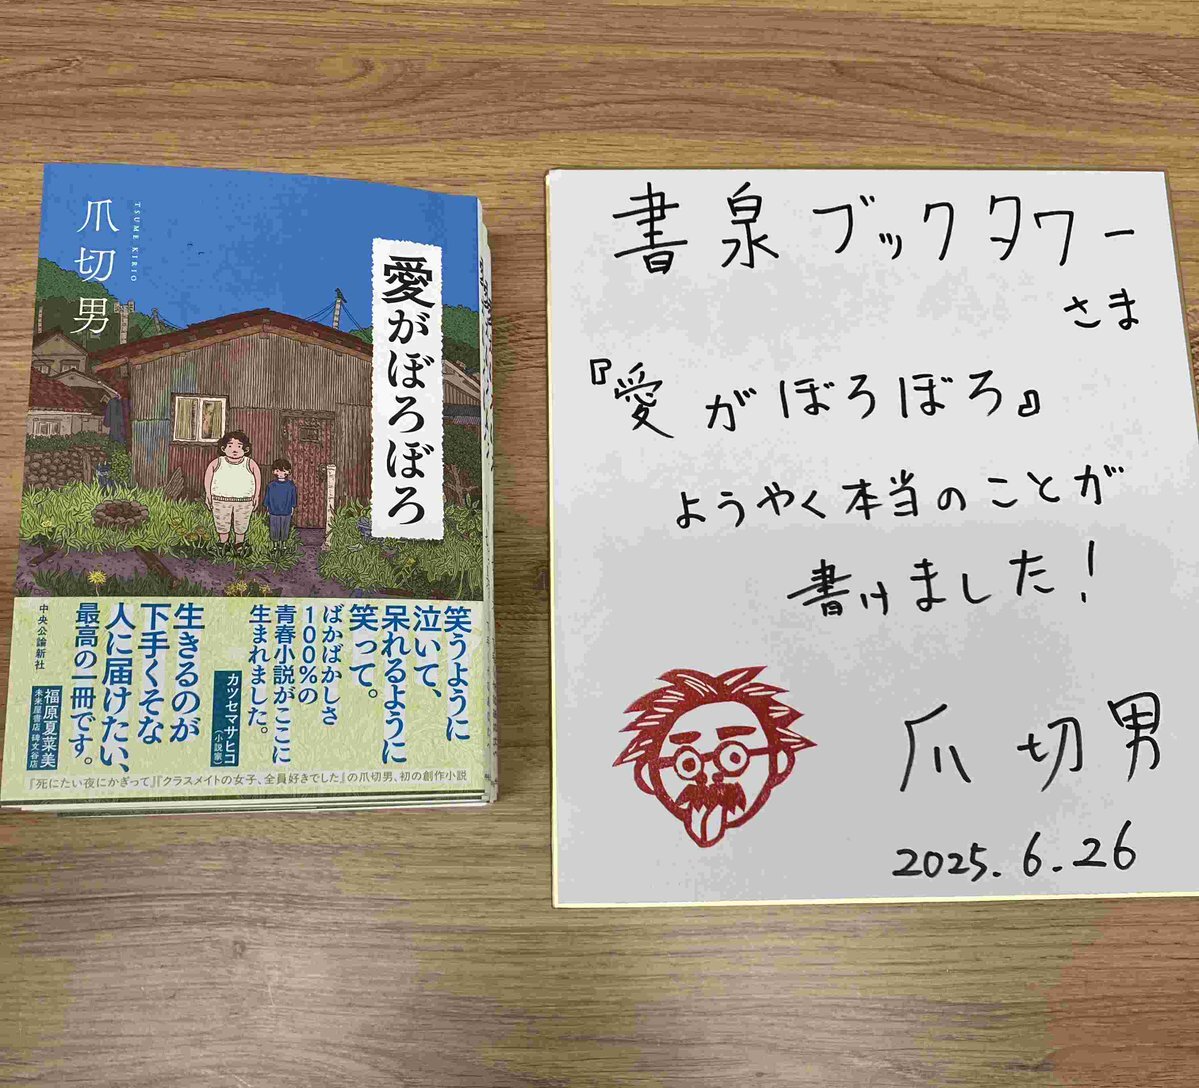 爪切男
TSUME KIRIO
愛がぼろぼろ
笑うように
泣いて、
呆れるように
笑って。
ばかばかしさ
100%の
青春小説がここに
生まれました。
カツセマサヒコ
(小説家)
生きるのが
下手くそな
人に届けたい、
最高の一冊です。
福原夏菜美
未来屋書店 碑文谷店
中央公論新社
『死にたい夜にかぎって』『クラスメイトの女子、全員好きでした』の爪切男、初の創作小説
書泉ブックタワー
さま
『愛がぼろぼろ』
ようやく本当のことが
書けました!
爪切男
2025.6.26